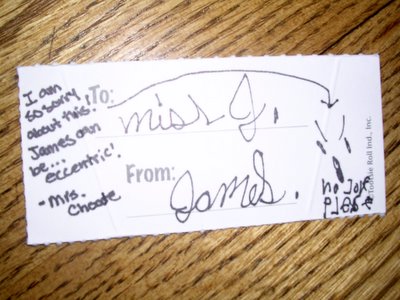 I am
so sorry
about this.
James can
be...
eccentric!
- Mrs.
Choate
To:
Miss J.
From:
James.
no
Tootsie Roll Ind., Inc.